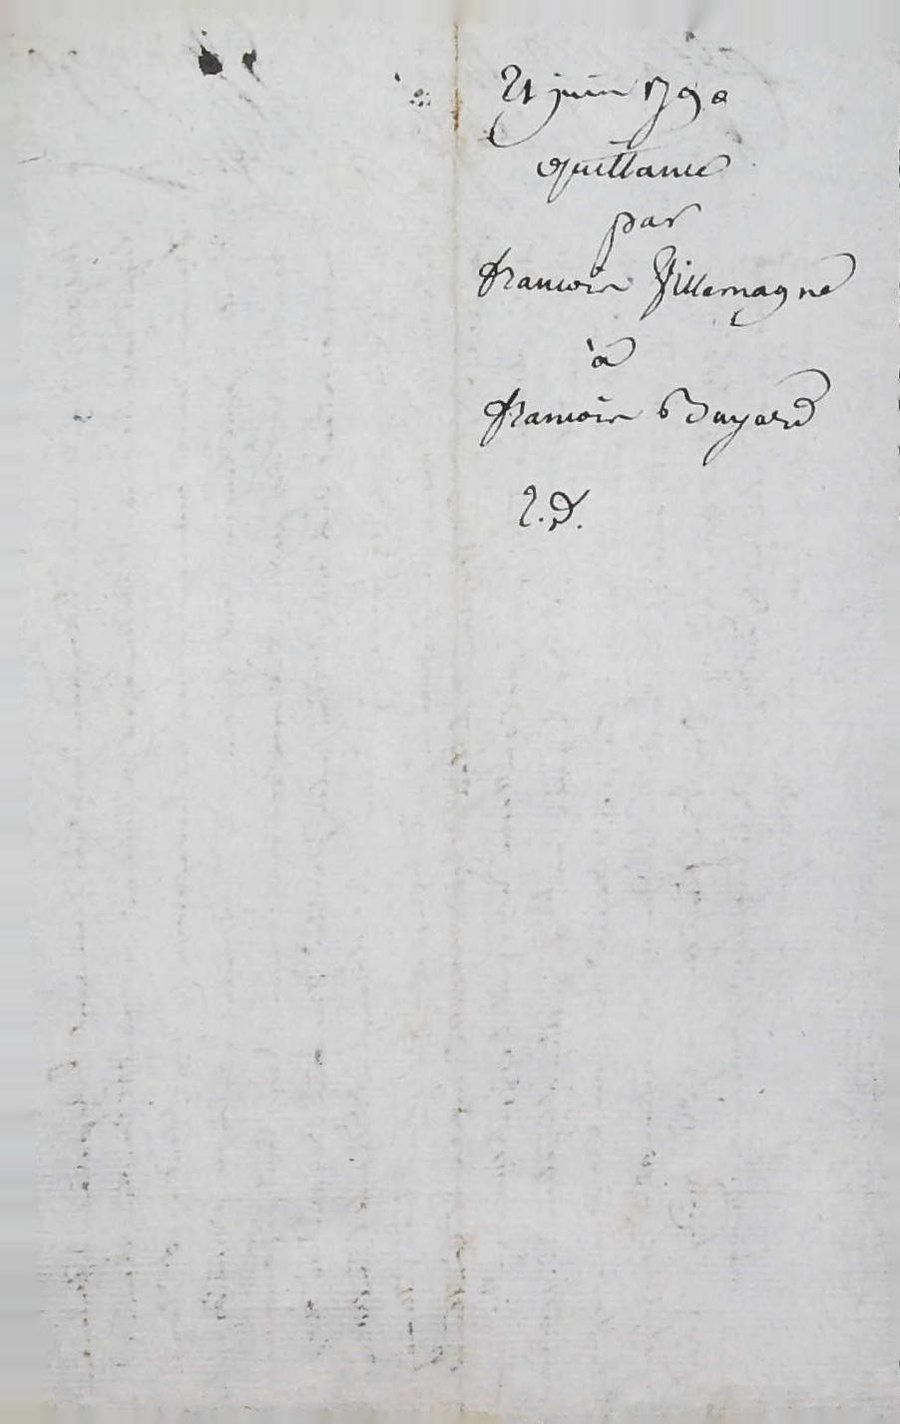 21 juin 1790
quittance
par
francois Villemagne
à
francois Bayard
2.d.